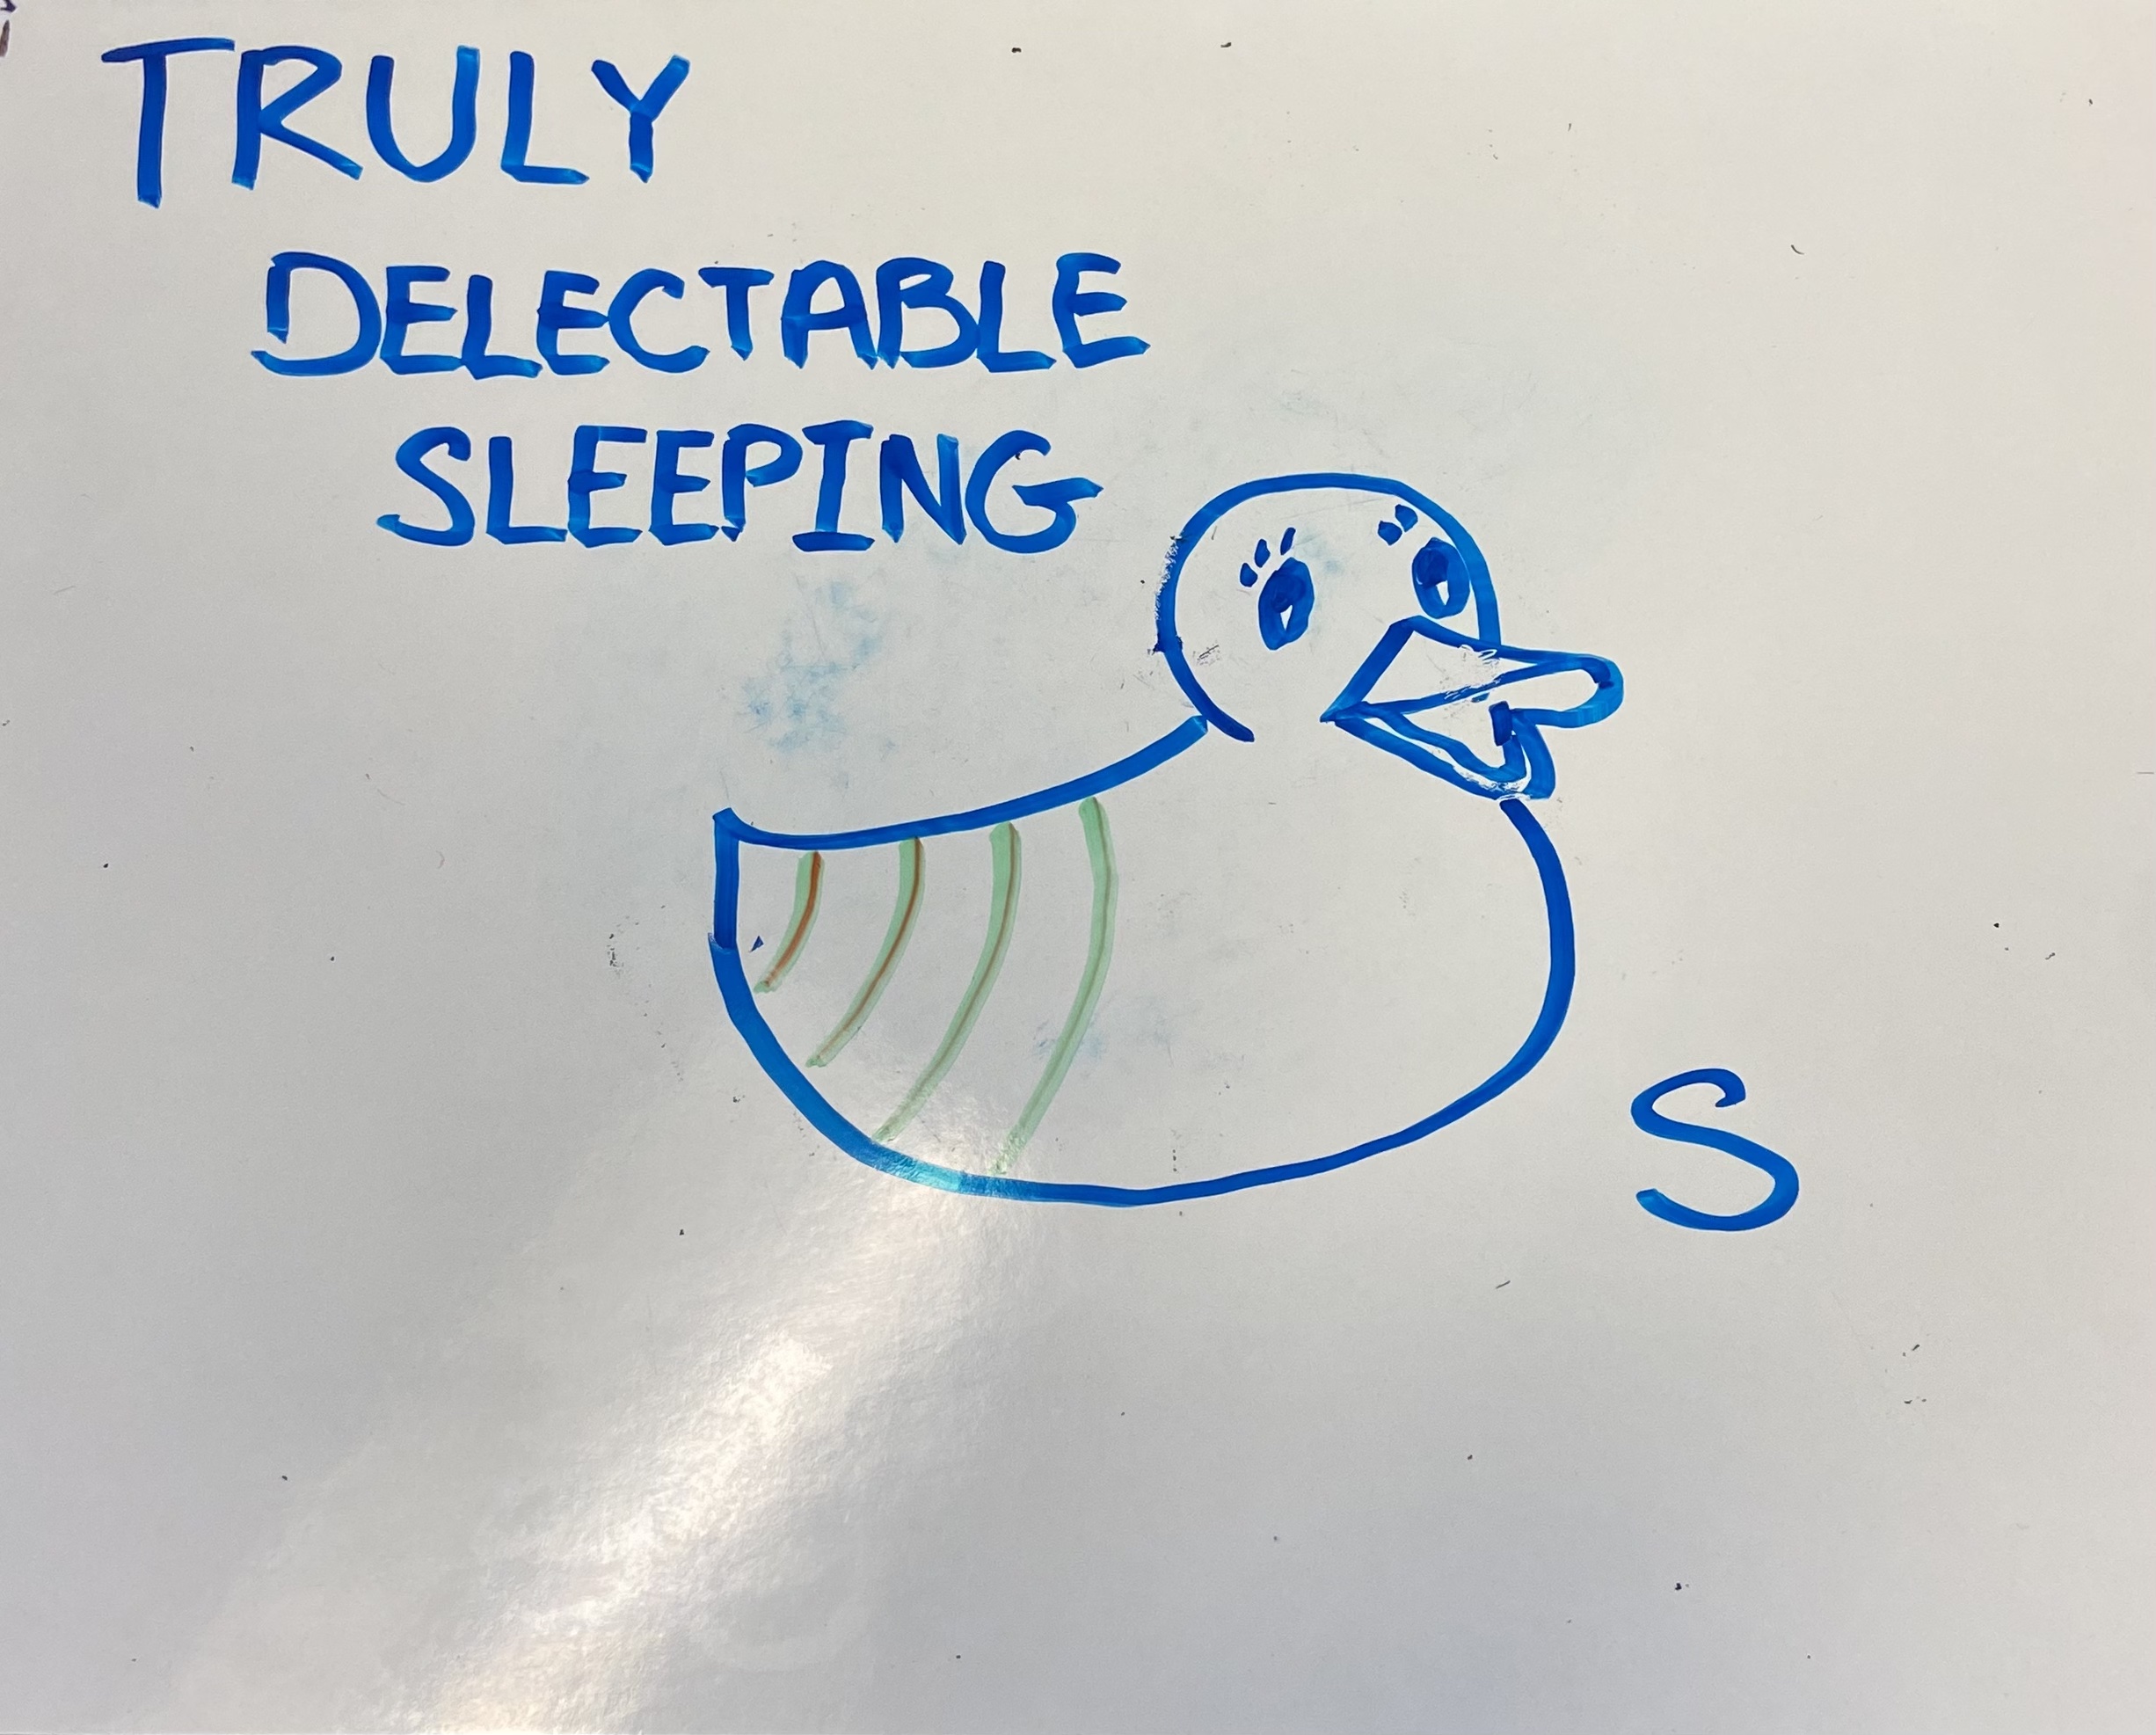 TRULY
DELECTABLE
SLEEPING
S